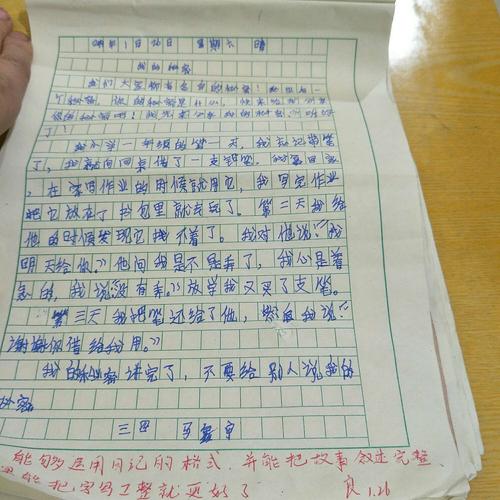 年1月26日 星期六 晴
我的秘密
我们大家都有自己的秘密!我也有一
个秘密,你的秘密是什么,快来和我分享
你的秘密吧!我先来分享我的秘密,
了!
我小学一年级的第一天,我忘记带笔
了,我就问同桌借了一支铅笔,我拿回家
,在写作业的时候就用它,我写完作业
把它放在了书包里就去玩了。第二天我给
他的时候发现它找不着了。我对他说:“我
明天给你。”他问我是不是弄了,我心是着
急的,我说“没有弄。”放学我又买了支笔。
第三天我把笔还给了他,然后我说:“
谢谢你借给我用。”
我的秘密讲完了,不要给别人说我的
秘密
三四
能够运用日记的格式,并能把故事叙述完整、
能把字写工整就更好了 良 1.26